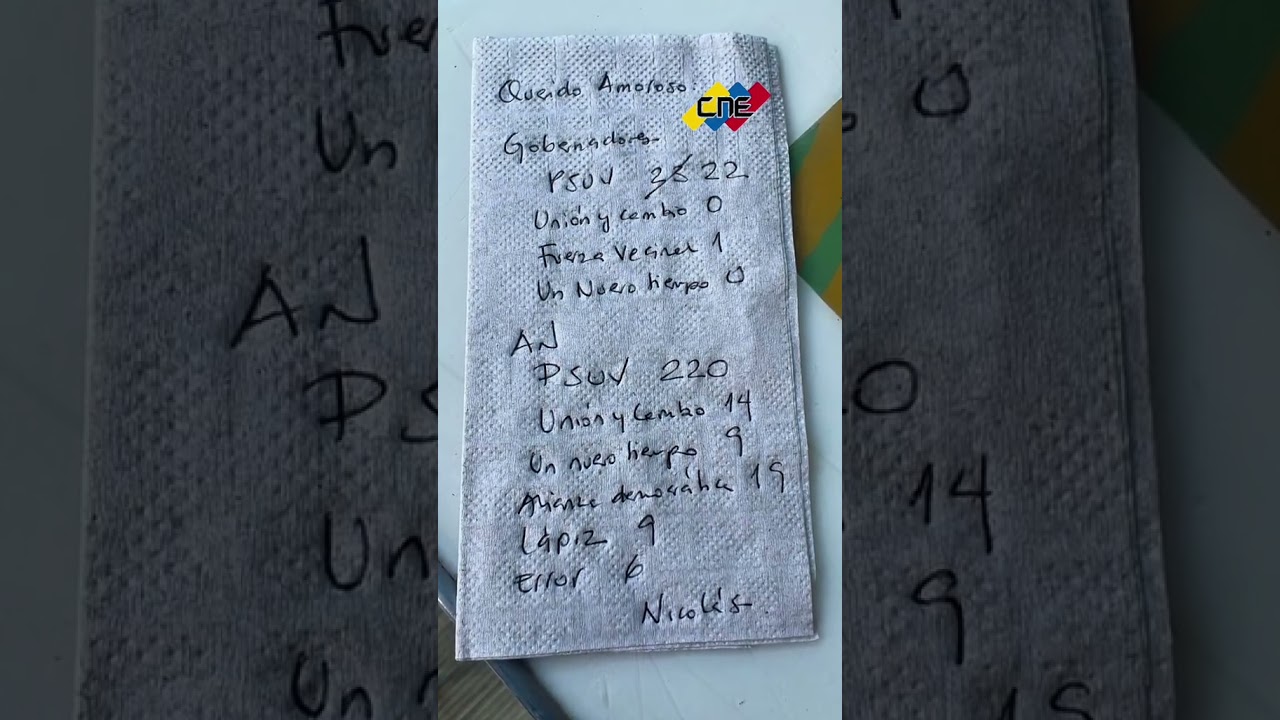 Querido Amoroso:
CNE
Gobernadores
PSUV 23 22
Unión y cambio 0
Fuerza Vecinal 1
Un Nuevo tiempo 0
AN
PSUV 220
Unión y Cambio 14
Un nuevo tiempo 9
Alianza democrática 19
Lápiz 9
Error 6
Nicolás